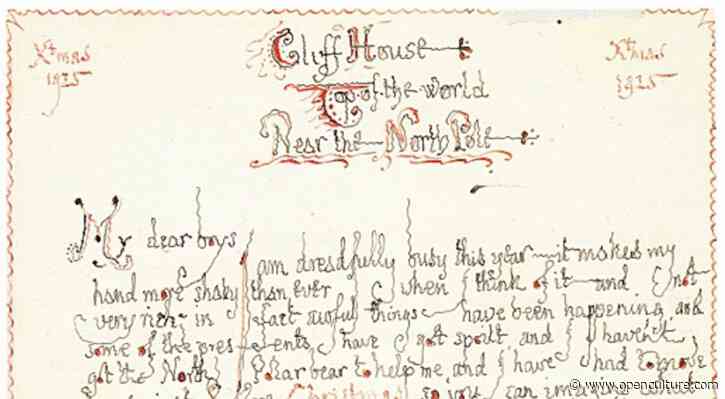 Xmas 1925
Cliff House
Top of the world
Near the North Pole
Xmas 1925
My dear boys
I am dreadfully busy this year — it makes my
hand more shaky than ever when I think of it — and not
very rich in fact awful things have been happening, and
some of the presents have got spoilt and I haven't
got the North Polar bear to help me and I have had to move
Christmas so you can imagine what
© www.openculture.com